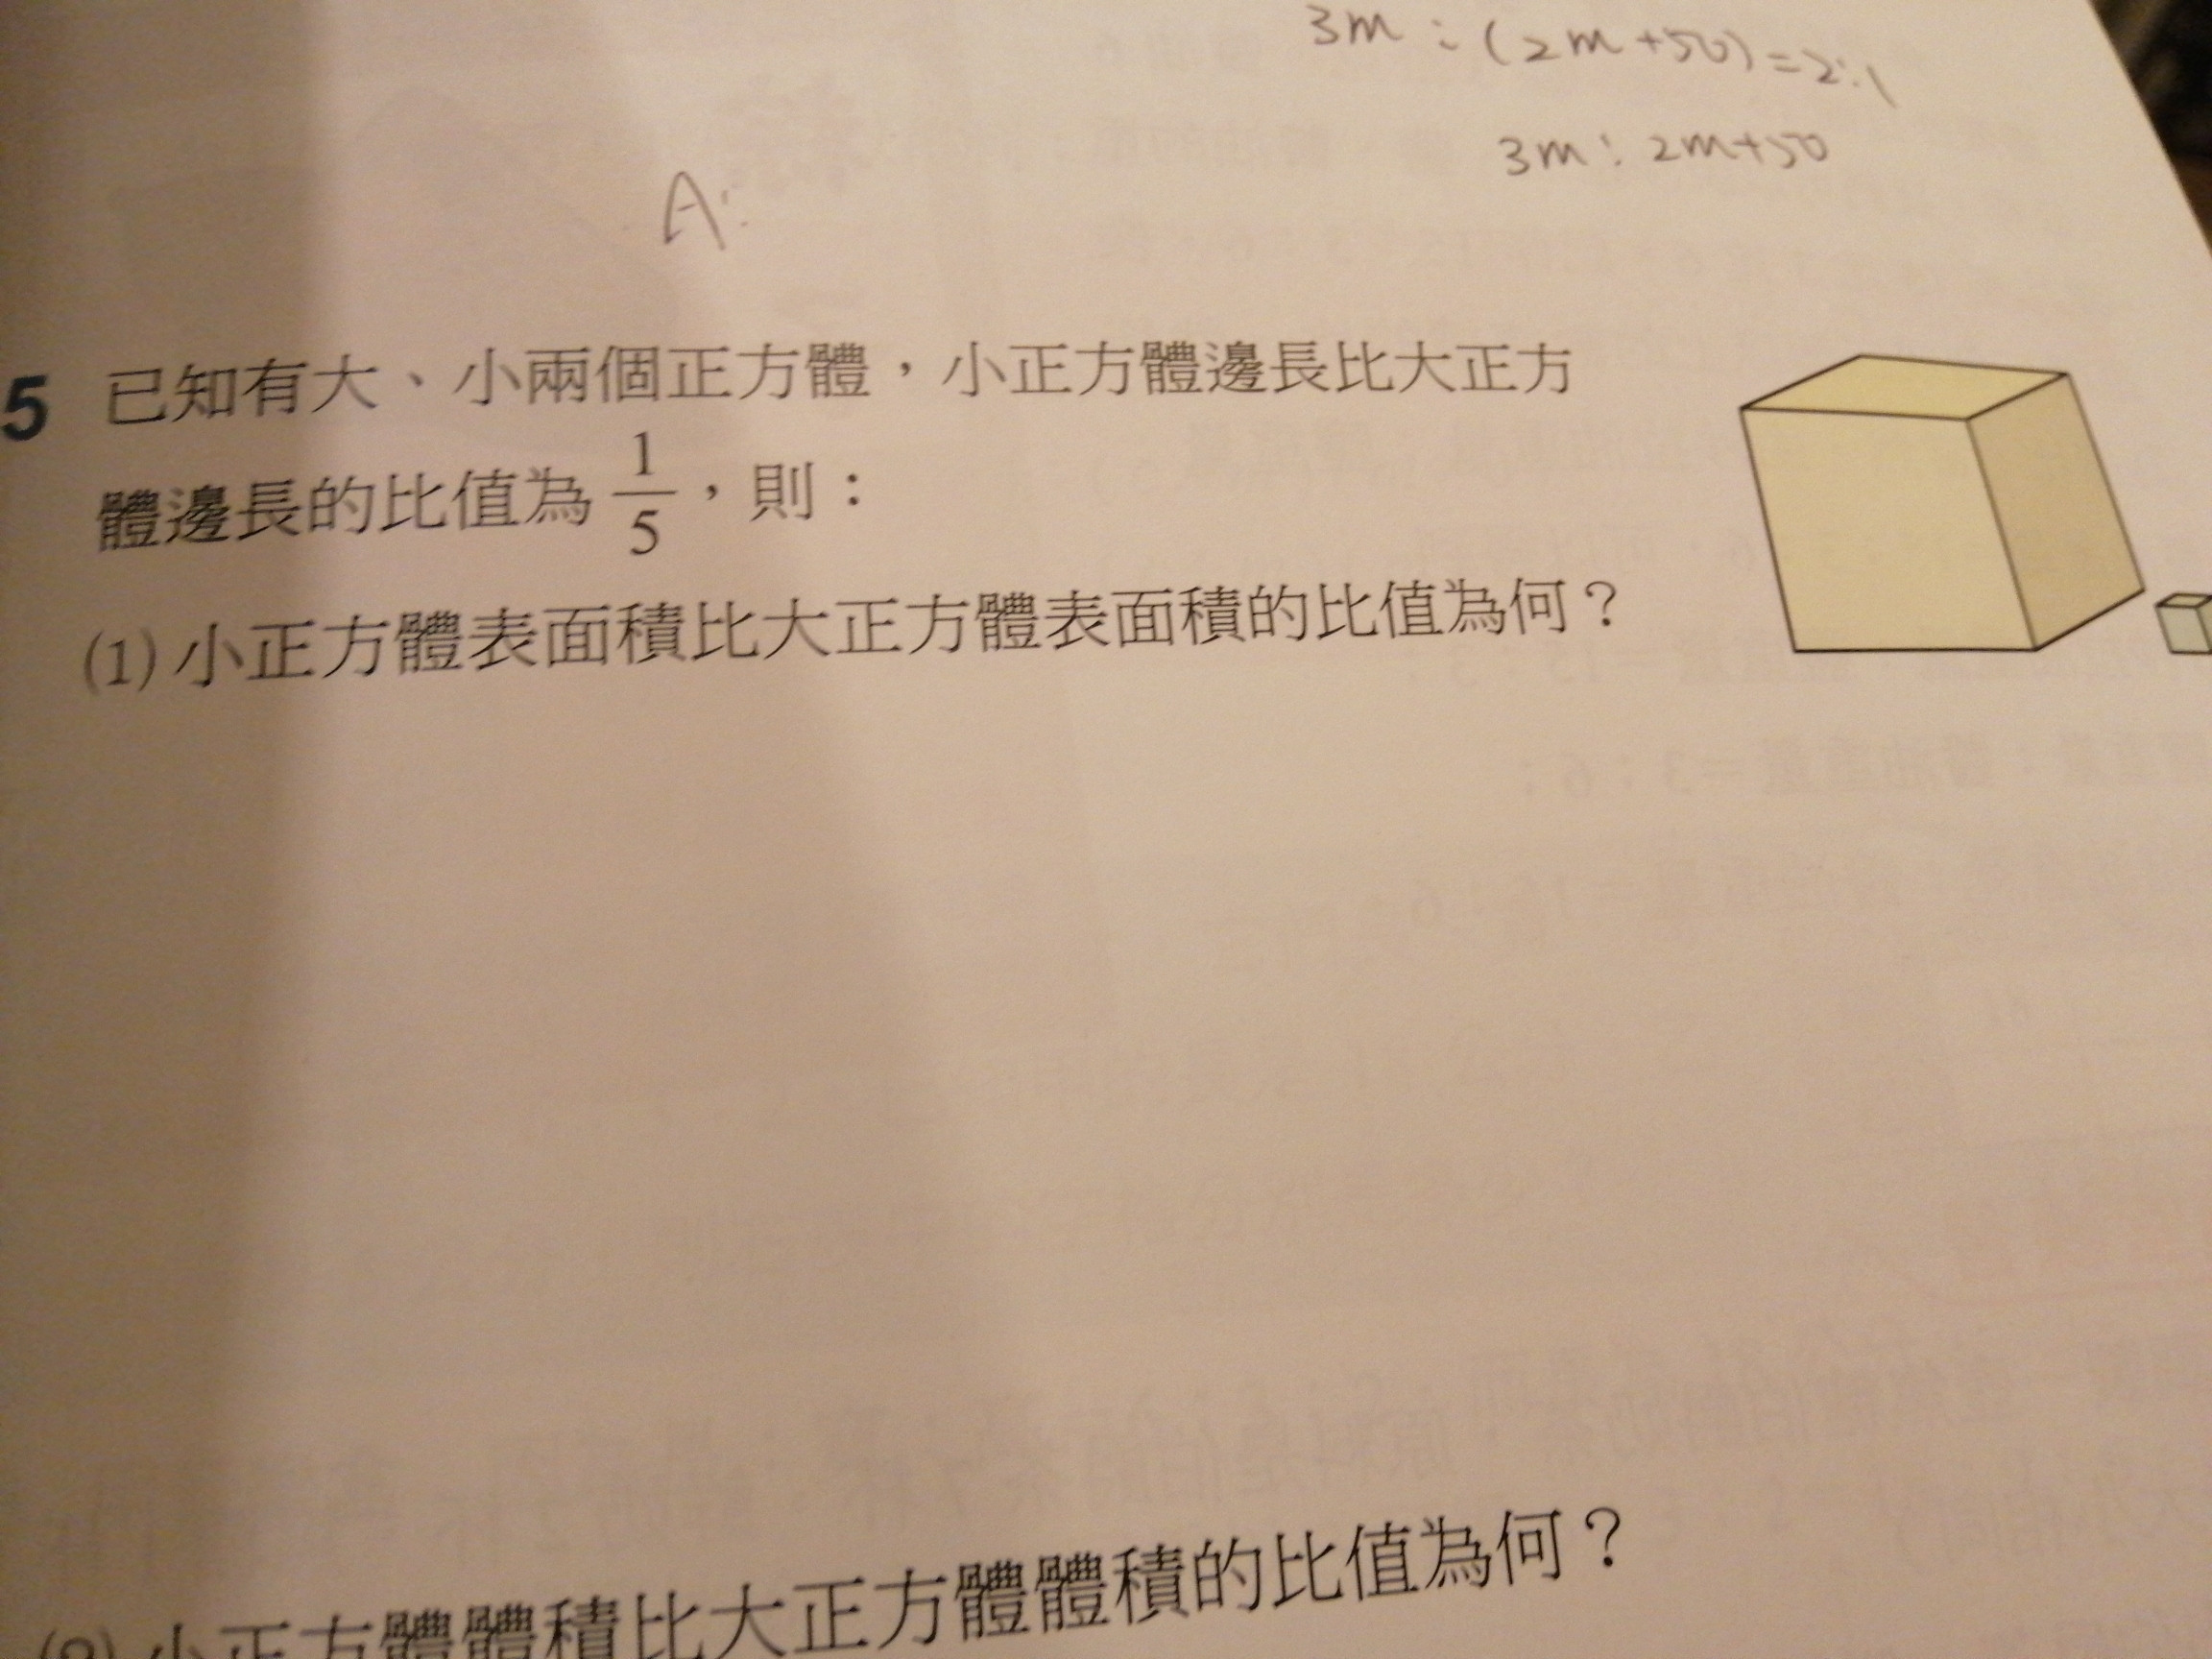 3m：(2m+50)=2:1
3m：2m+50
A:
5 已知有大、小兩個正方體，小正方體邊長比大正方
體邊長的比值為 1/5，則：
(1) 小正方體表面積比大正方體表面積的比值為何？
(2) 小正方體體積比大正方體體積的比值為何？